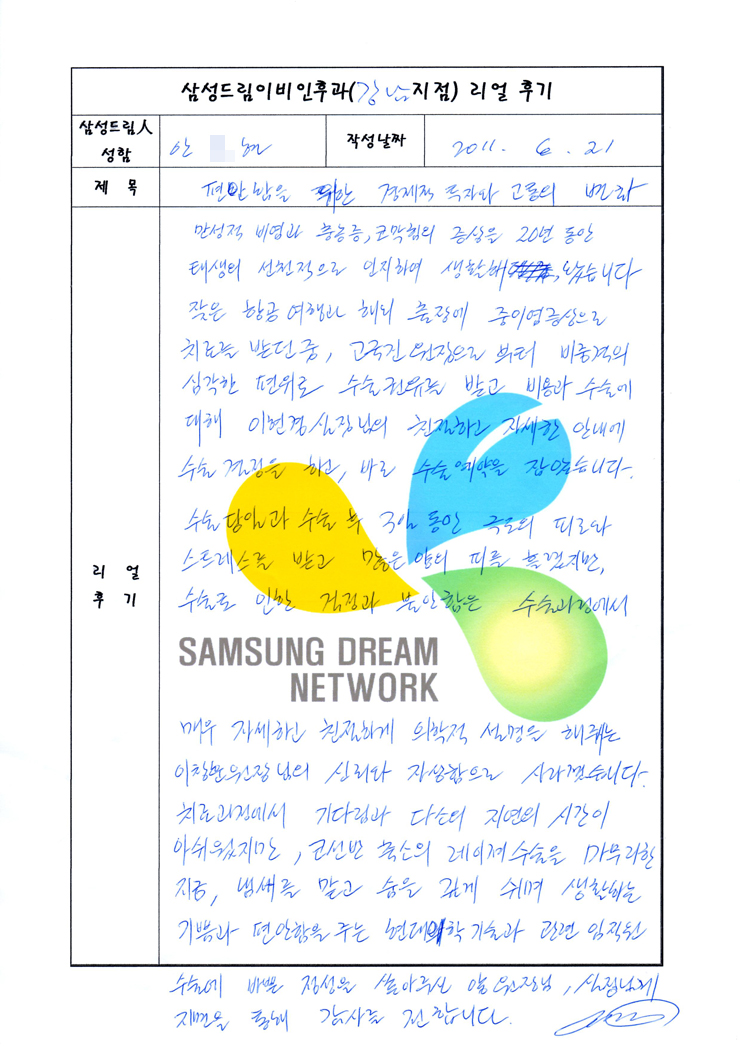 삼성드림이비인후과(강남지점) 리얼 후기
삼성드림人 성함
안 현
작성날짜
2011. 6. 21
제 목
편안함을 위한 경제적 투자와 고통의 변화
리 얼 후 기
만성적 비염과 축농증, 코막힘의 증상을 20년 동안
태생의 선천적으로 인지하여 생활해 왔습니다
잦은 항공여행과 해외 출장에 중이염증상으로
치료를 받던 중, 고국진 원장으로 부터 비중격의
심각한 편위로 수술권유를 받고 비용과 수술에
대해 이현경실장님의 친절하고 자세한 안내에
수술결정을 하고, 바로 수술예약을 잡았습니다.
수술당일과 수술 후 3일 동안 극도의 피로와
스트레스를 받고 많은 양의 피를 흘렸지만,
수술로 인한 걱정과 불안함은 수술과정에서
SAMSUNG DREAM
NETWORK
매우 자세하고 친절하게 의학적 설명을 해주는
원장님의 신뢰와 자상함으로 사라졌습니다.
치료과정에서 기다림과 다소의 지연의 시간이
아쉬웠지만, 코선반 축소의 레이져수술을 마무리한
지금, 냄새를 맡고 숨을 쉬며 생활하는
기쁨과 편안함을 주는 현대의학기술과 관련 임직원
수술에 바쁜 정성을 쏟아주신 양 원장님, 실장님께
지면을 통해 감사를 전합니다.